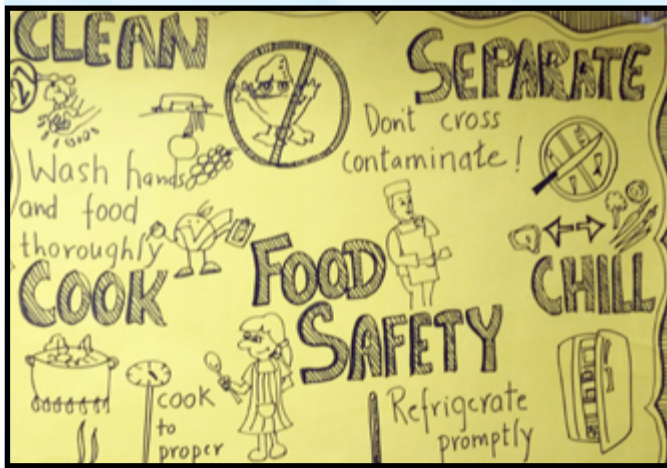 CLEAN
Wash hands
and food
thoroughly
SEPARATE
Dont cross
contaminate!
FOOD
SAFETY
COOK
cook
to
proper
CHILL
Refrigerate
promptly